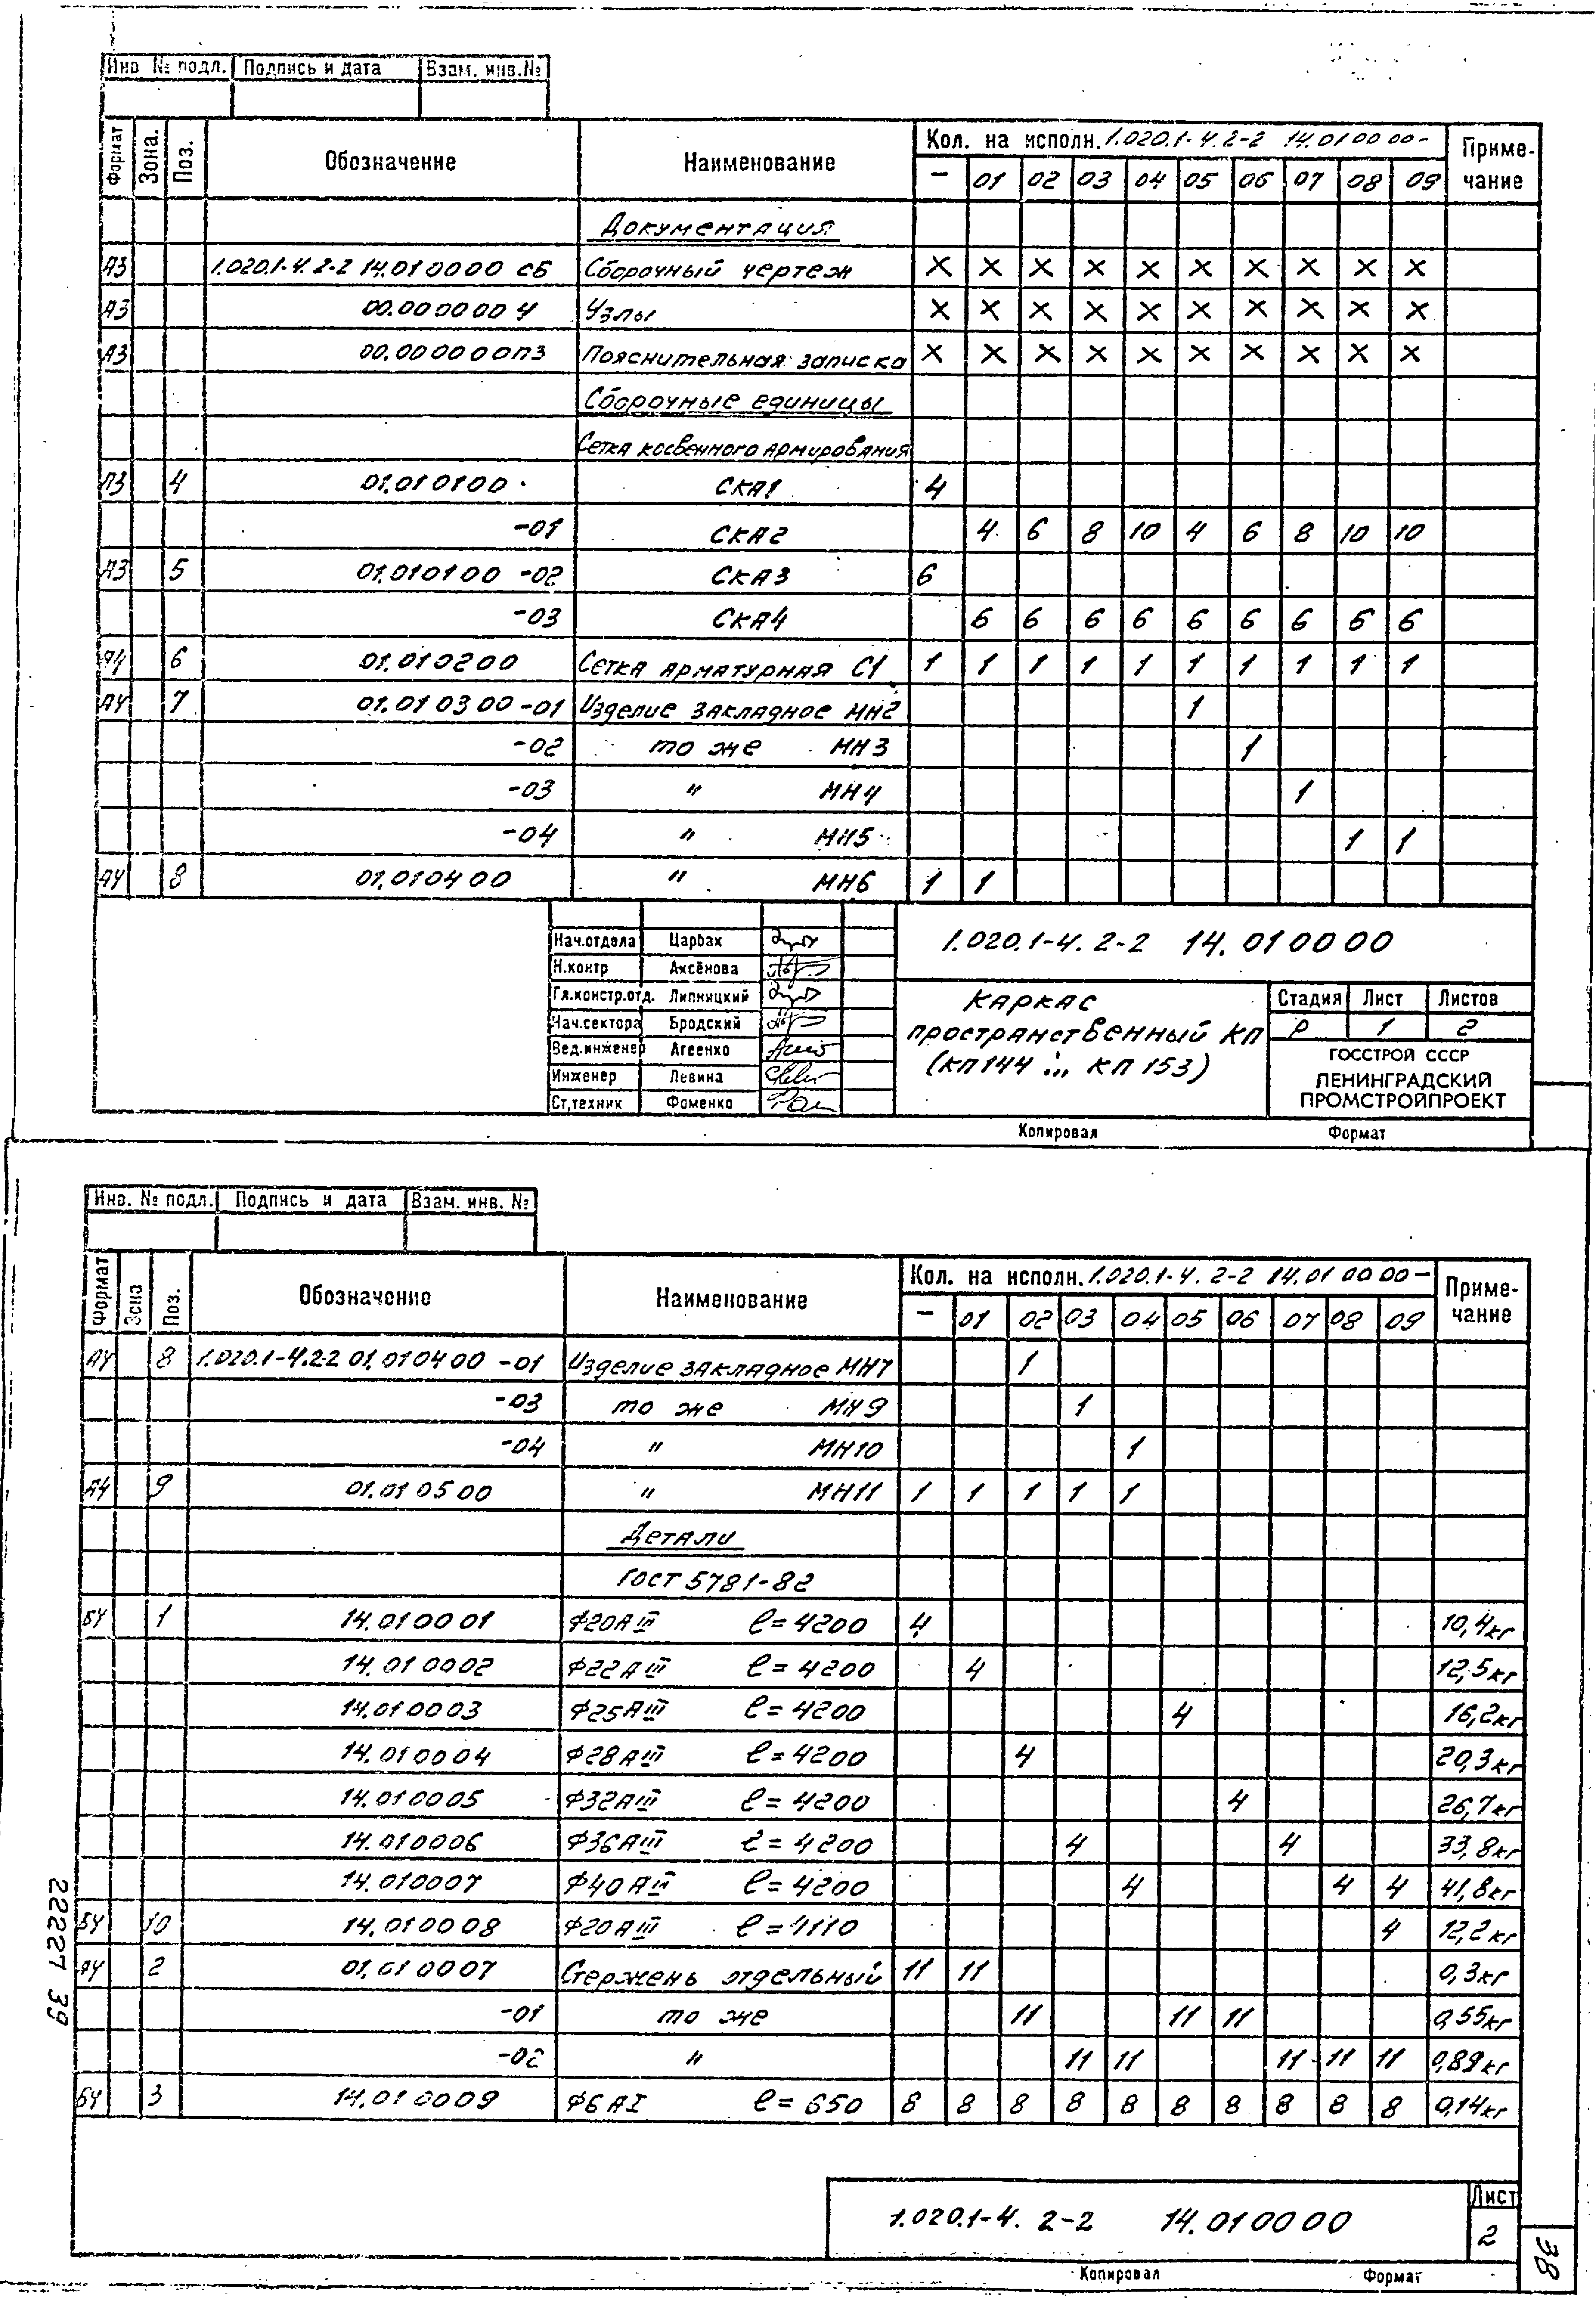 Инв № подл. Подпись и дата Взам. инв.№
Формат Зона. Поз. Обозначение Наименование Кол. на исполн. 1.020.1-4.2-2 14.01 00 00- Примечание
- 01 02 03 04 05 06 07 08 09
Документация
А3 1.020.1-4.2-2 14.01 0000 СБ Сборочный чертеж × × × × × × × × × ×
А3 00.00 00 00 У Узлы × × × × × × × × × ×
А3 00.00 00 00ПЗ Пояснительная записка × × × × × × × × × ×
Сборочные единицы
Сетка косвенного армирования
А3 4 01.01 01 00 СКА1 4
-01 СКА2 4 6 8 10 4 6 8 10 10
А3 5 01.01 01 00 -02 СКА3 6
-03 СКА4 6 6 6 6 6 6 6 6 6
А4 6 01.01 02 00 Сетка арматурная С1 1 1 1 1 1 1 1 1 1 1
А4 7 01.01 03 00 -01 Изделие закладное МН2 1
-02 то же МН3 1
-03 " МН4 1
-04 " МН5 1 1
А4 8 01.01 04 00 " МН6 1 1
Нач.отдела Царбах
Н.контр Аксёнова
Гл.констр.отд. Липницкий
Нач.сектора Бродский
Вед.инженер Агеенко
Инженер Левина
Ст.техник Фоменко
1.020.1-4. 2-2 14. 01 00 00
Каркас
пространственный КП
(КП144 ... КП153)
Стадия Лист Листов
Р 1 2
ГОССТРОЙ СССР
ЛЕНИНГРАДСКИЙ
ПРОМСТРОЙПРОЕКТ
Копировал Формат
Инв. № подл. Подпись и дата Взам. инв. №
Формат Зона Поз. Обозначение Наименование Кол. на исполн. 1.020.1-4. 2-2 14.01 00 00- Примечание
- 01 02 03 04 05 06 07 08 09
А4 8 1.020.1-4.2-2 01.01 04 00 -01 Изделие закладное МН7 1
-03 то же МН9 1
-04 " МН10 1
А4 9 01.01 05 00 " МН11 1 1 1 1 1
Детали
ГОСТ 5781-82
БЧ 1 14.01 00 01 Ф20АIII ℓ=4200 4 10,4кг
14.01 00 02 Ф22АIII ℓ=4200 4 12,5кг
14.01 00 03 Ф25АIII ℓ=4200 4 16,2кг
14.01 00 04 Ф28АIII ℓ=4200 4 20,3кг
14.01 00 05 Ф32АIII ℓ=4200 4 26,7кг
14.01 00 06 Ф36АIII ℓ=4200 4 4 33,8кг
14.01 00 07 Ф40АIII ℓ=4200 4 4 4 41,8кг
БЧ 10 14.01 00 08 Ф20АIII ℓ=4110 4 12,2кг
А4 2 01.01 00 07 Стержень отдельный 11 11 0,3кг
-01 то же 11 11 11 0,55кг
-02 " 11 11 11 11 11 0,89кг
БЧ 3 14.01 00 09 Ф6АI ℓ=650 8 8 8 8 8 8 8 8 8 8 0,14кг
1.020.1-4. 2-2 14.01 00 00
Лист
2
Копировал Формат
22227 39
38